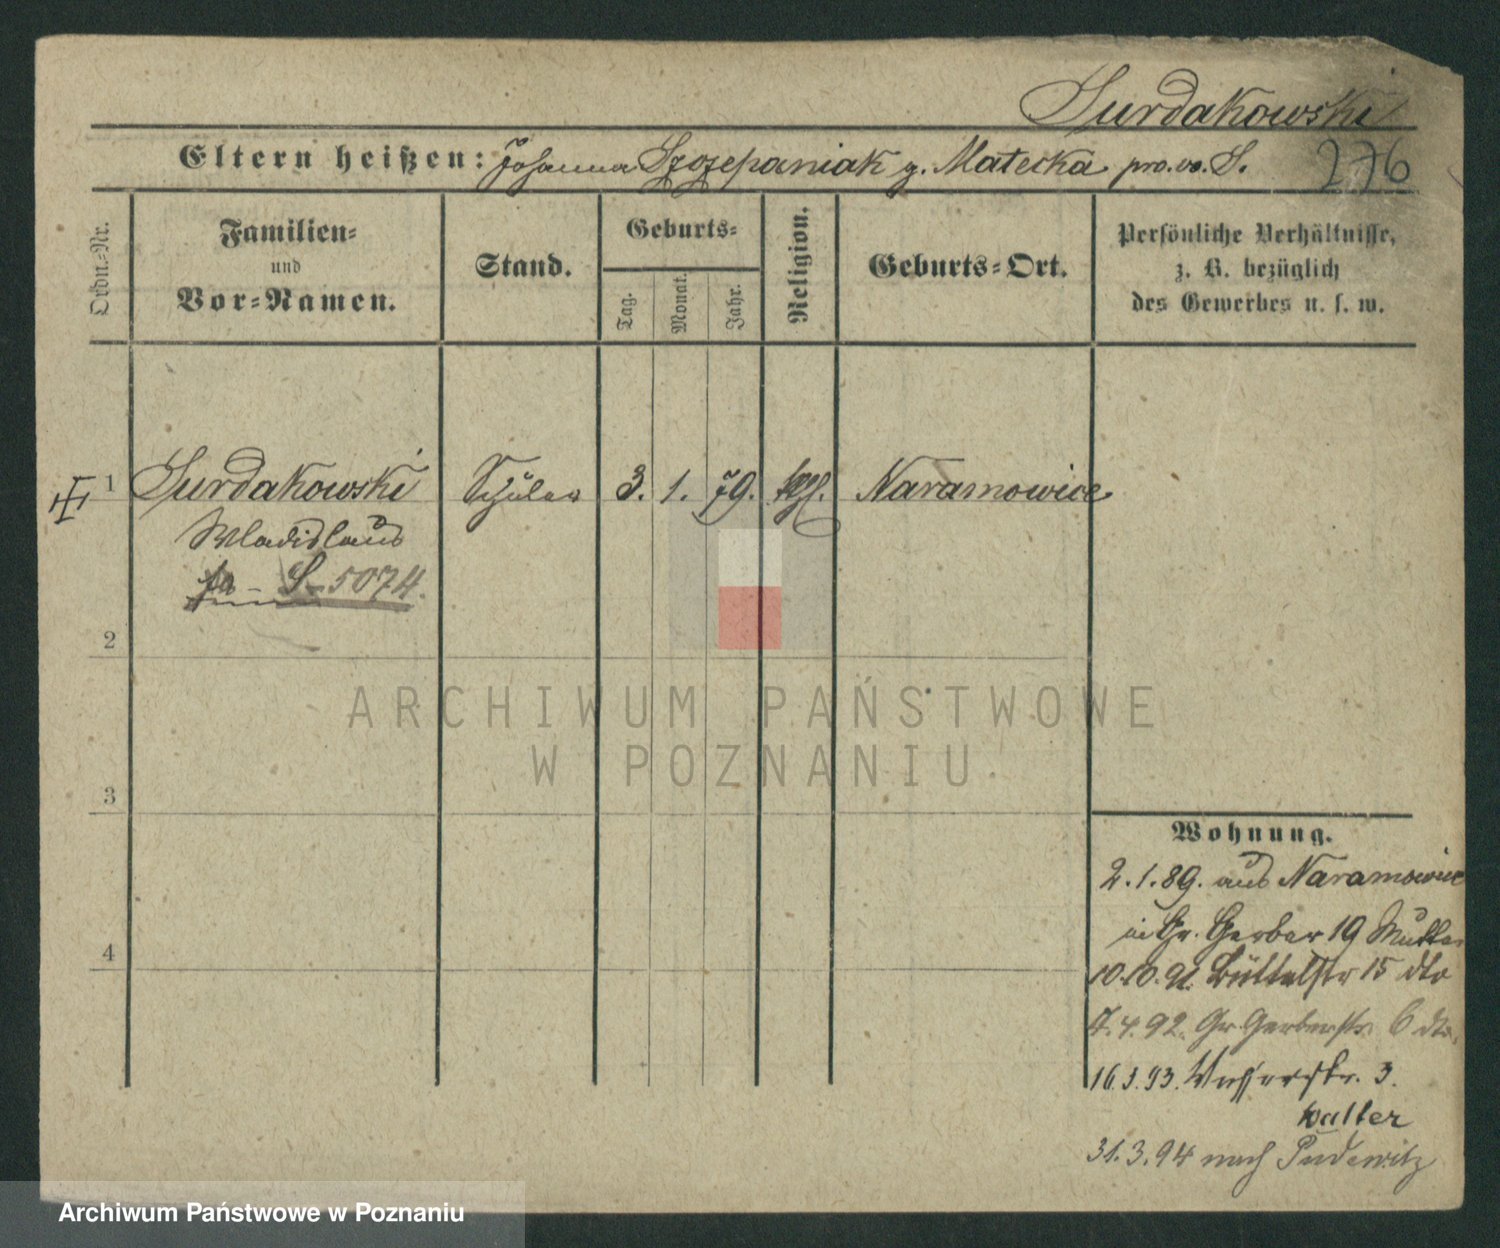 Surdakowski
Eltern heißen: Johanna Szczepaniak g. Matecka pro. vo. S. 276
Ordn.-Nr.
Familien-
und
Vor-Namen.
Stand.
Geburts-
Tag.
Monat.
Jahr.
Religion.
Geburts-Ort.
Persönliche Verhältnisse,
z. B. bezüglich
des Gewerbes u. s. w.
1 Surdakowski Schüler 3. 1. 79. kth. Naramowice
Wladislaus
S-5074.
2
3
4
Wohnung.
2.1.89. aus Naramowice
in Gr. Gerber 19 Mutter
10.10.91. Büttelstr 15 dto
7.4.92. Gr. Gerberstr. 6 dto.
16.3.93. Wasserstr. 3.
Walter
31.3.94 nach Pudewitz
ARCHIWUM PAŃSTWOWE
W POZNANIU
Archiwum Państwowe w Poznaniu